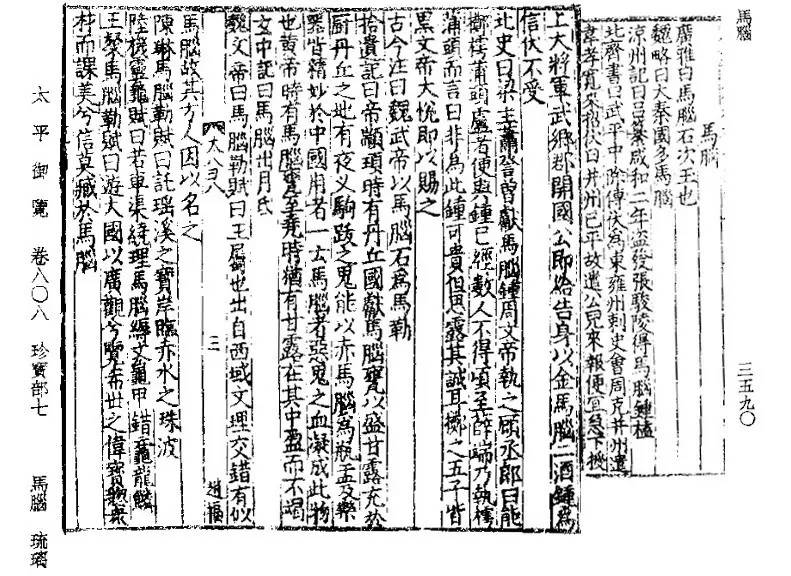 馬腦
三五九〇
馬腦
廣雅曰馬腦石次玉也
魏略曰大秦國多馬腦
涼州記曰呂纂咸和二年盜發張駿陵得馬腦鍾榼
北齊書曰武平中除傅伏為東雍州刺史會周克并州遣
韋孝寬來招伏曰并州已平故遣公兒來報便宜急下授
上大將軍武鄉郡開國公即給告身以金馬腦二酒鍾為
信伏不受
北史曰梁主蕭詧曾獻馬腦鍾周文帝執之顧丞郎曰能
擲樗蒲頭盧者便與鍾已經數人不得頃至薛端乃執樗
蒲頭而言曰非為此鍾可貴但思露其誠耳擲之五子皆
黑文帝大悅即以賜之
古今注曰魏武帝以馬腦石為馬勒
拾遺記曰帝顓頊時有丹丘國獻馬腦甕以盛甘露充於
厨丹丘之地有夜叉駒跋之鬼能以赤馬腦為瓶盂及樂
器皆精妙於中國用者一云馬腦者惡鬼之血凝成此物
也黃帝時有馬腦甕至堯時猶有甘露在其中盈而不竭
玄中記曰馬腦出月氏
魏文帝曰馬腦勒賦曰玉屬也出自西域文理交錯有似
太八百八
三
趙福
馬腦故其方人因以名之
陳琳馬腦勒賦曰託瑤溪之寶岸臨赤水之珠波
陸機靈龜賦曰若車渠繞理馬腦縟文龜甲錯龜龍鱗
王粲馬腦勒賦曰遊大國以廣觀兮覽希世之偉寶總衆
材而課美兮信莫臧於馬腦
太平御覽 卷八〇八 珍寶部七 馬腦 琉璃